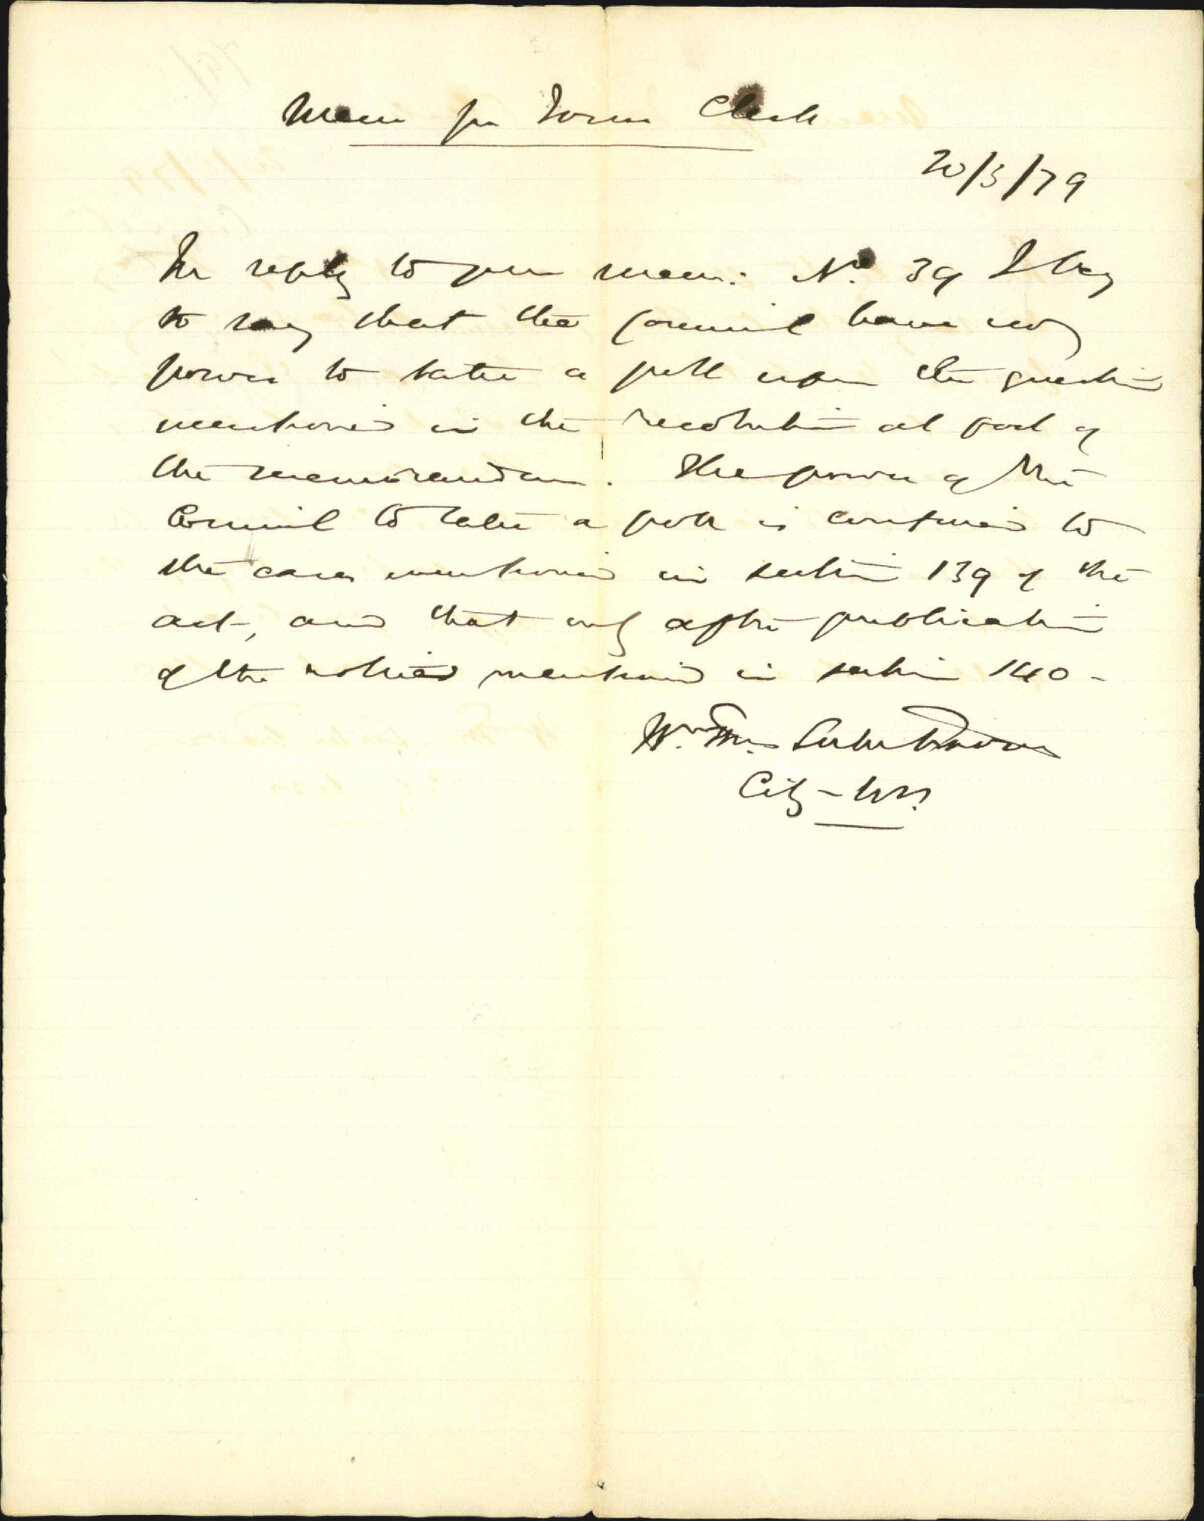 Mem for Town Clerk
20/3/79
In reply to your mem: No. 39 I beg
to say that the Council have no
power to take a poll upon the question
mentioned in the resolution at foot of
the memorandum. The power of the
Council to take a poll is confined to
the cases mentioned in section 139 of the
act, and that only after publication
of the notices mentioned in section 140 -
Wm.
City -